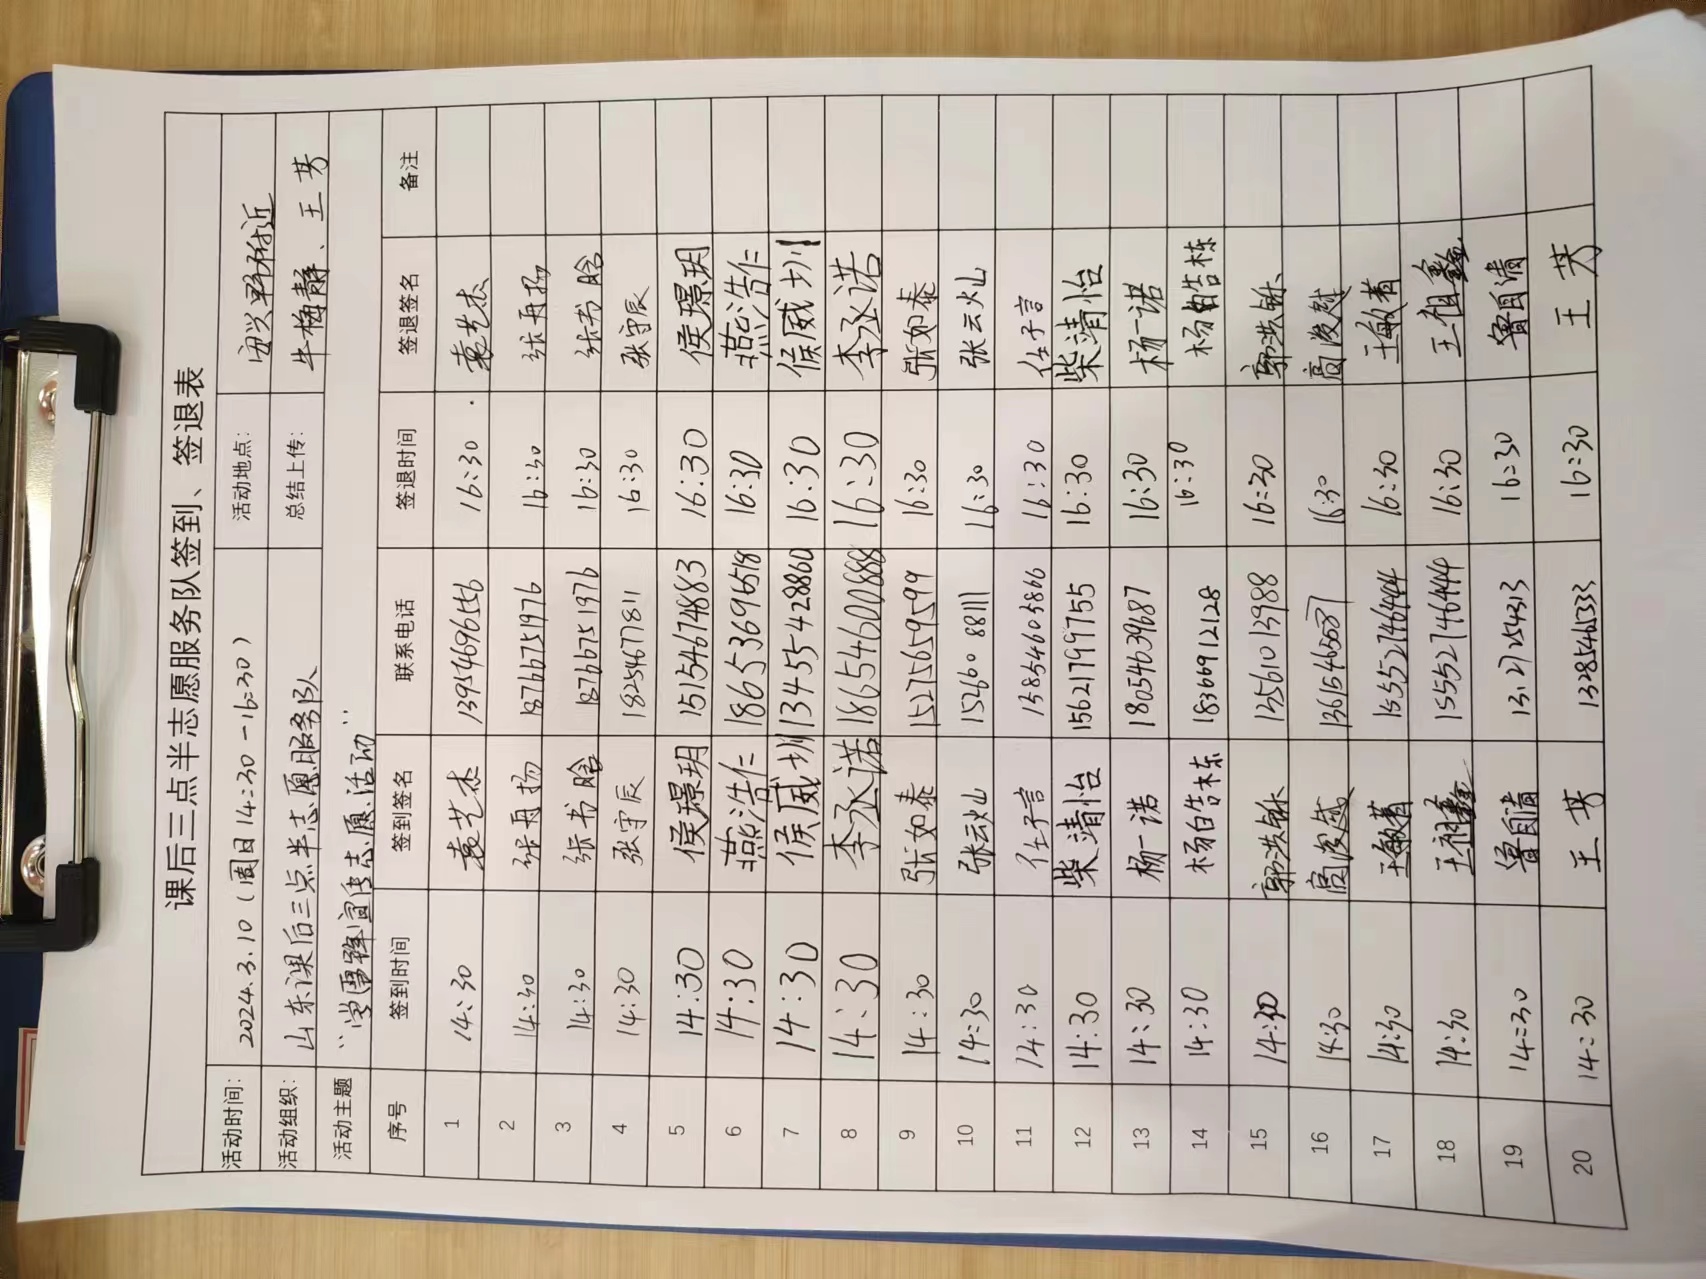 课后三点半志愿服务队签到、签退表
活动时间: 2024.3.10(周日14:30-16:30) 活动地点: 附近
活动组织: 山东课后三点半志愿服务队 总结上传: 牛梅静、王芳
活动主题 “学雷锋宣传志愿活动”
序号 签到时间 签到签名 联系电话 签退时间 签退签名 备注
1 14:30 袁艺杰 13954696556 16:30 袁艺杰
2 14:30 张冉扬 18766751976 16:30 张冉扬
3 14:30 张书晗 18766751976 16:30 张书晗
4 14:30 张守辰 18254677811 16:30 张守辰
5 14:30 侯璟玥 15154674883 16:30 侯璟玥
6 14:30 燕浩仁 18653696518 16:30 燕浩仁
7 14:30 侯威圳 13455428860 16:30 侯威圳
8 14:30 李丞诺 18654600888 16:30 李丞诺
9 14:30 张如泰 15275659599 16:30 张如泰
10 14:30 张云灿 15266088111 16:30 张云灿
11 14:30 任子言 13854605866 16:30 任子言
12 14:30 柴清怡 15621799755 16:30 柴清怡
13 14:30 杨一诺 18054639687 16:30 杨一诺
14 14:30 杨皓栋 18366912128 16:30 杨皓栋
15 14:30 郭洪 13561013988 16:30 郭洪
16 14:30 高俊越 16:30 高俊越
17 14:30 王敏菁 15552746444 16:30 王敏菁
18 14:30 王祖鑫 15552746444 16:30 王祖鑫
19 14:30 鲁自清 13127254313 16:30 鲁自清
20 14:30 王芳 13285465333 16:30 王芳